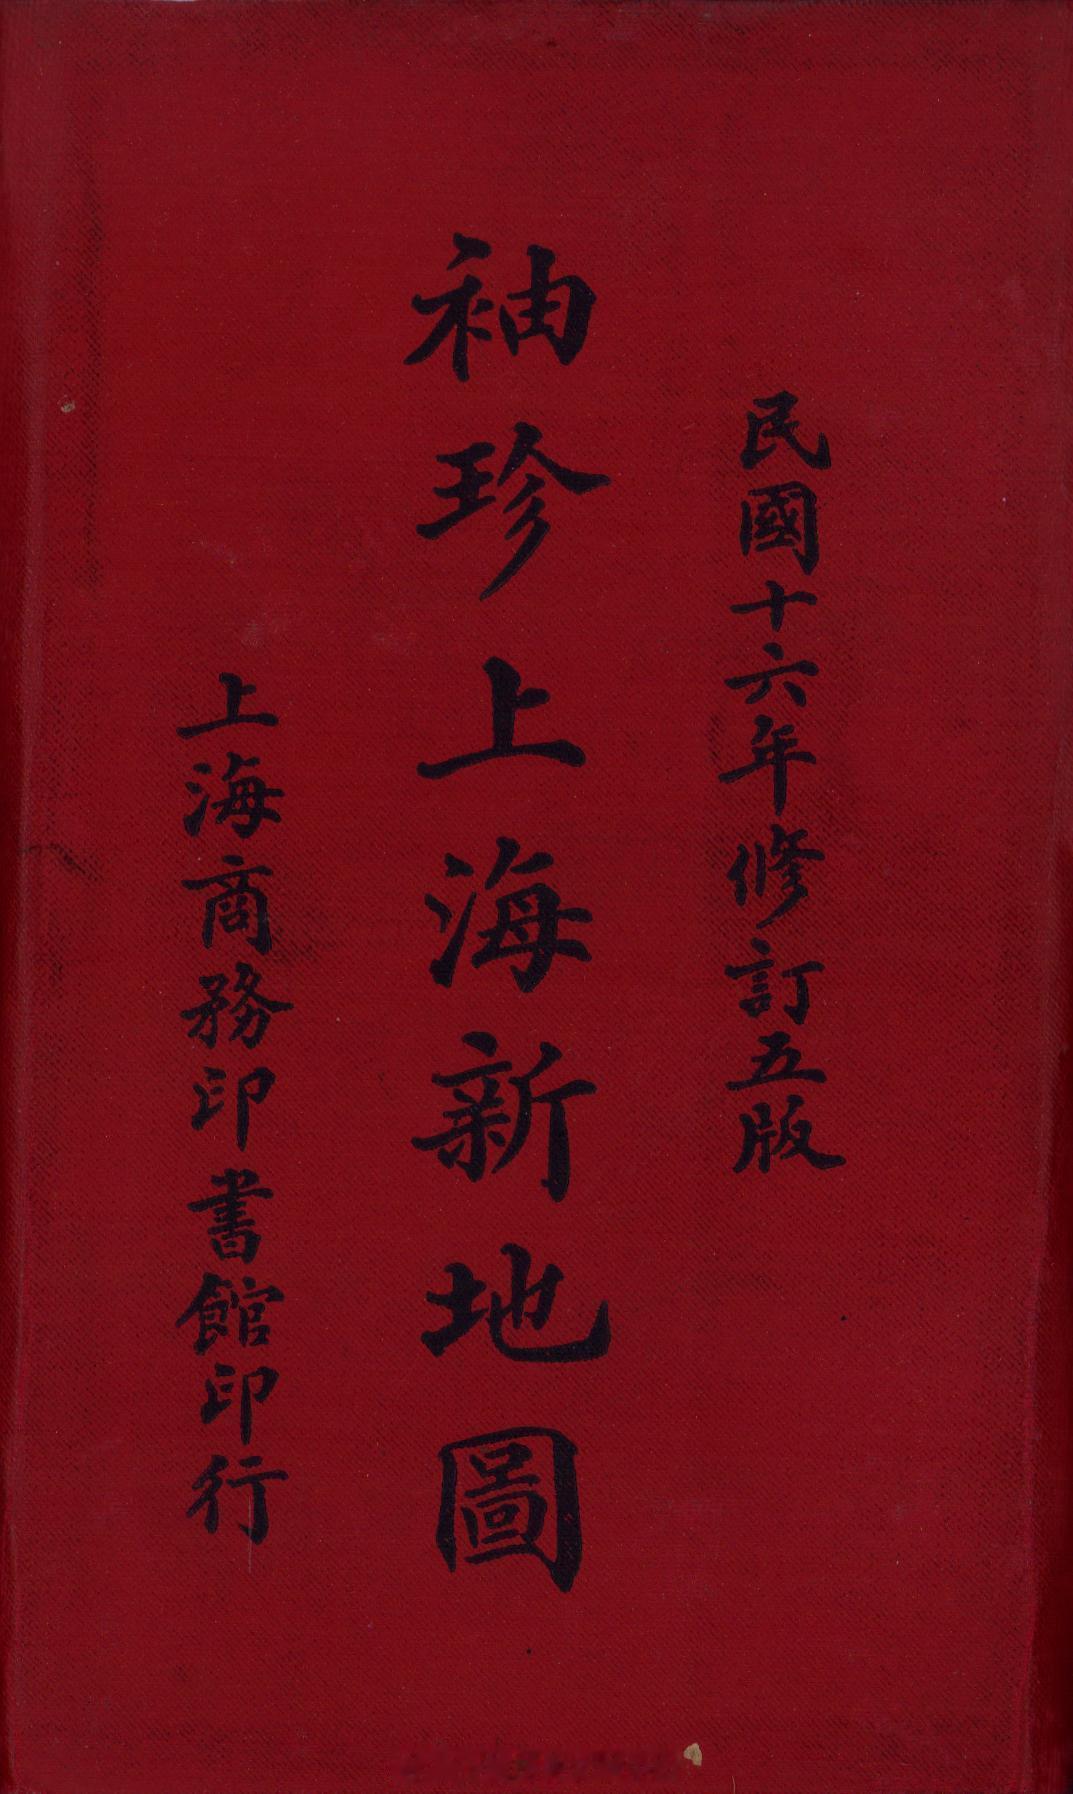 民國十六年修訂五版
袖珍上海新地圖
上海商務印書館印行